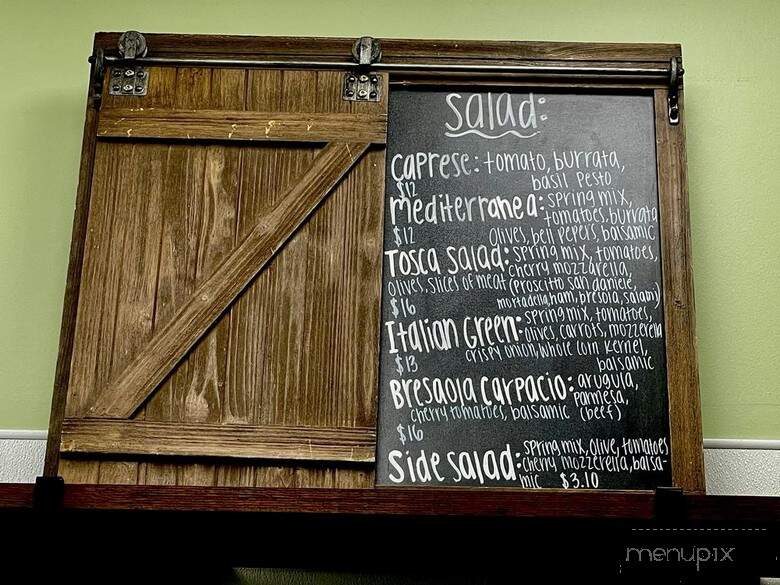 Salad:
Caprese: tomato, burrata,
$12 basil pesto
Mediterranea: spring mix,
tomatoes, burrata
$12 olives, bell pepers, balsamic
Tosca Salad: spring mix, tomatoes,
cherry mozzarella,
olives, slices of meat (proscitto san daniele,
$16 mortadella, ham, bresola, salami)
Italian Green: spring mix, tomatoes,
olives, carrots, mozzerella
$13 crispy onion, whole corn kernel,
balsamic
Bresaola Carpacio: arugula,
parmesa,
cherry tomatoes, balsamic (beef)
$16
Side Salad: spring mix, olive, tomatoes
cherry mozzerella, balsa-
mic $3.10
menupix